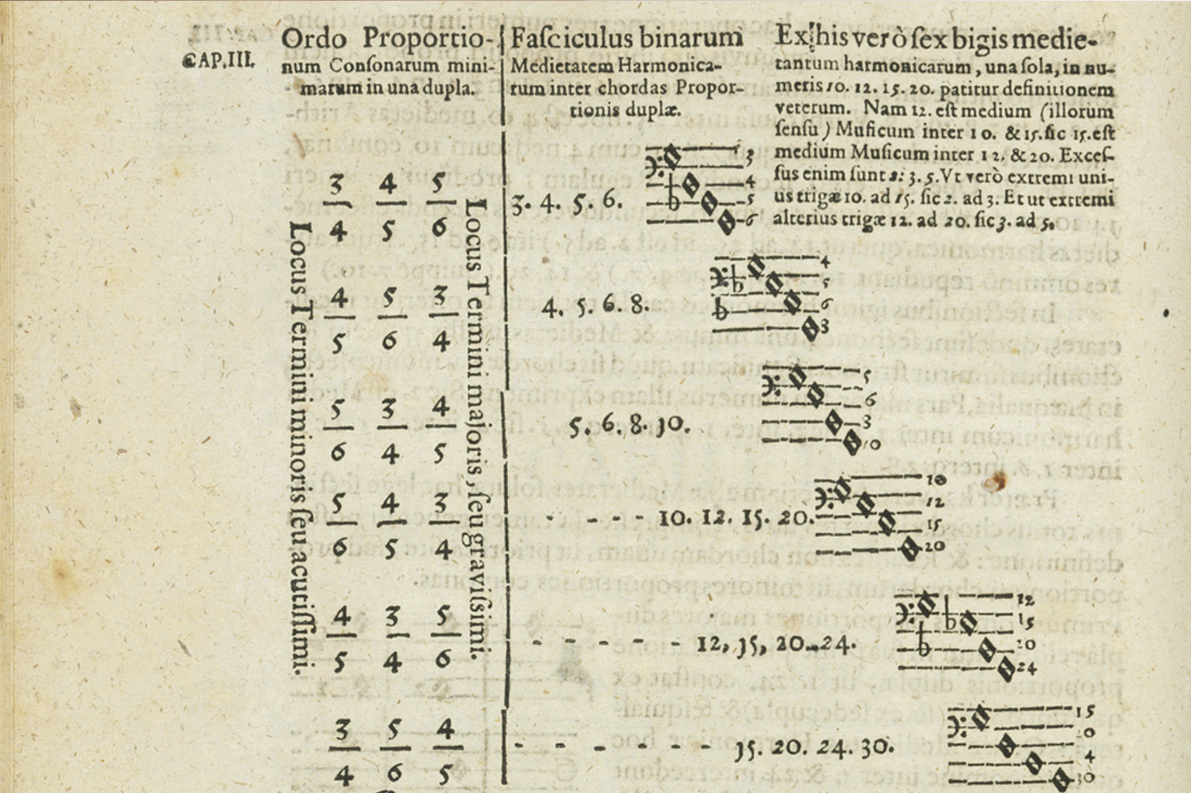 CAP.III.
Ordo Proportio-
num Conſonarum mini-
marum in una dupla.
3 4 5
4 5 6
4 5 3
5 6 4
5 3 4
6 4 5
5 4 3
6 5 4
4 3 5
5 4 6
3 5 4
4 6 5
Locus Termini minoris ſeu acutiſſimi.
Locus Termini majoris, ſeu graviſsimi.
Faſciculus binarum
Medietatem Harmonica-
rum inter chordas Propor-
tionis duplæ.
3. 4. 5. 6.
3
4
5
6
4. 5. 6. 8.
4
5
6
3
5. 6. 8. 10.
5
6
3
10
10. 12. 15. 20.
10
12
15
20
12, 15, 20. 24.
12
15
20
24
15. 20. 24. 30.
15
20
4
30
Ex his verò ſex bigis medie-
tantum harmonicarum, una ſola, in nu-
meris 10. 12. 15. 20. patitur definitionem
veterum. Nam 12. eſt medium (illorum
ſenſu) Muſicum inter 10. & 15. ſic 15. eſt
medium Muſicum inter 12. & 20. Exceſ-
ſus enim ſunt 2: 3. 5. Vt verò extremi uni-
us trigæ 10. ad 15. ſic 2. ad 3. Et ut extremi
alterius trigæ 12. ad 20. ſic 3. ad 5.